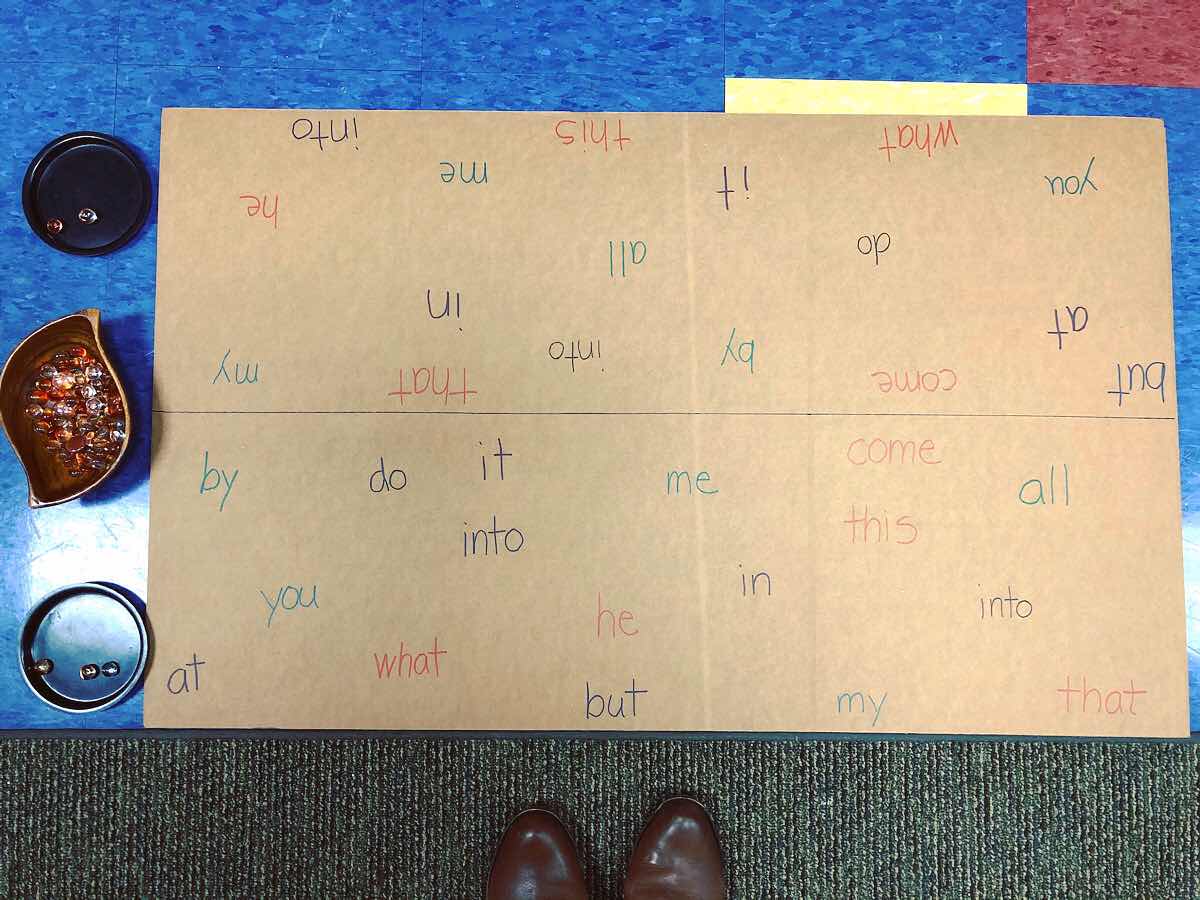 into this what
me it you
he
all do
in at
my that into by come but
by do it me come all
into this
you he in into
at what but my that